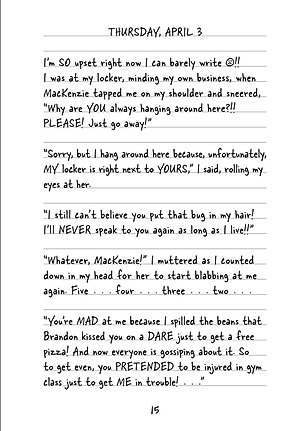 THURSDAY, APRIL 3
I'm SO upset right now I can barely write ☹!!
I was at my locker, minding my own business, when
MacKenzie tapped me on my shoulder and sneered,
"Why are YOU always hanging around here?!!
PLEASE! Just go away!"
"Sorry, but I hang around here because, unfortunately,
MY locker is right next to YOURS," I said, rolling my
eyes at her.
"I still can't believe you put that bug in my hair!
I'll NEVER speak to you again as long as I live!!"
"Whatever, MacKenzie!" I muttered as I counted
down in my head for her to start blabbing at me
again. Five . . . four . . . three . . . two . . .
"You're MAD at me because I spilled the beans that
Brandon kissed you on a DARE just to get a free
pizza! And now everyone is gossiping about it. So
to get even, you PRETENDED to be injured in gym
class just to get ME in trouble! . . ."
15